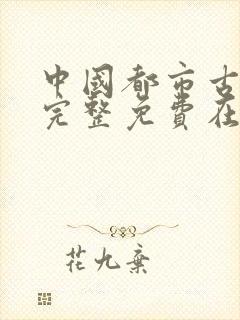 中國都市古
完整免費在
花九棄